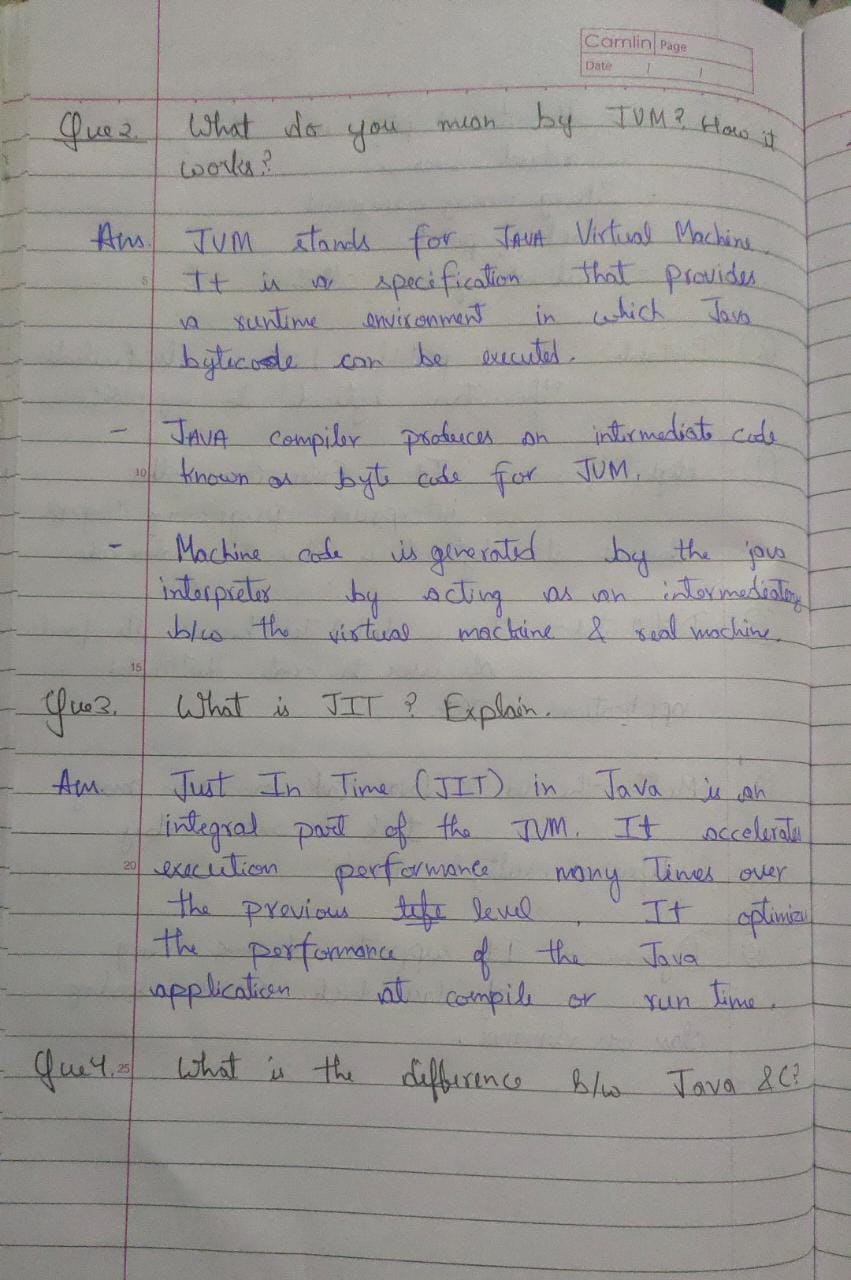 Camlin Page
Date / /
Que2. What do you mean by JVM? How it
works?
Ans. JVM stands for JAVA Virtual Machine.
5 It is a specification that provides
a runtime environment in which Java
bytecode can be executed.
- JAVA compiler produces an intermediate code
10 known as byte code for JVM.
- Machine code is generated by the java
interpreter by acting as an intermediatery
b/w the virtual machine & real machine.
15
Que3. What is JIT ? Explain.
Ans. Just In Time (JIT) in Java is an
integral part of the JVM. It accelerates
20 execution performance many times over
the previous level. It optimize
the performance of the Java
application at compile or run time.
Que4. 25 What is the difference b/w Java & C?